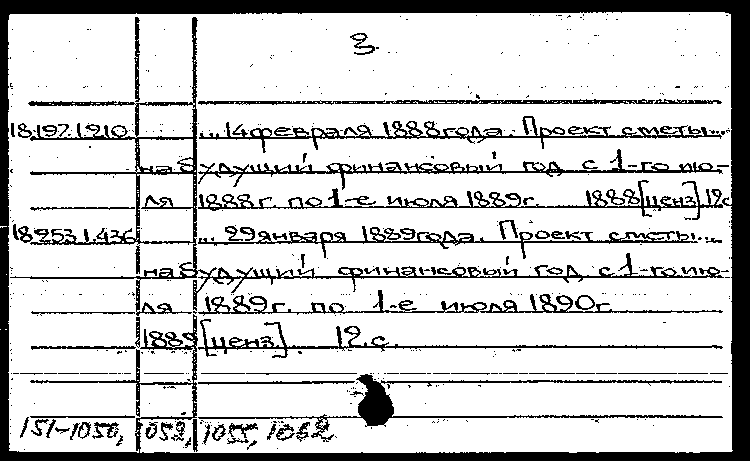 3
18.197.1.210 ... 14 февраля 1888 года. Проект сметы...
на будущий финансовый год с 1-го ию-
ля 1888 г. по 1-е июля 1889 г. 1888 [ценз] 12 с
18.253.1.436 ... 29 января 1889 года. Проект сметы...
на будущий финансовый год с 1-го ию-
ля 1889 г. по 1-е июля 1890 г.
1889 [ценз]. 12. с.
151-1050, 1052, 1055, 1062